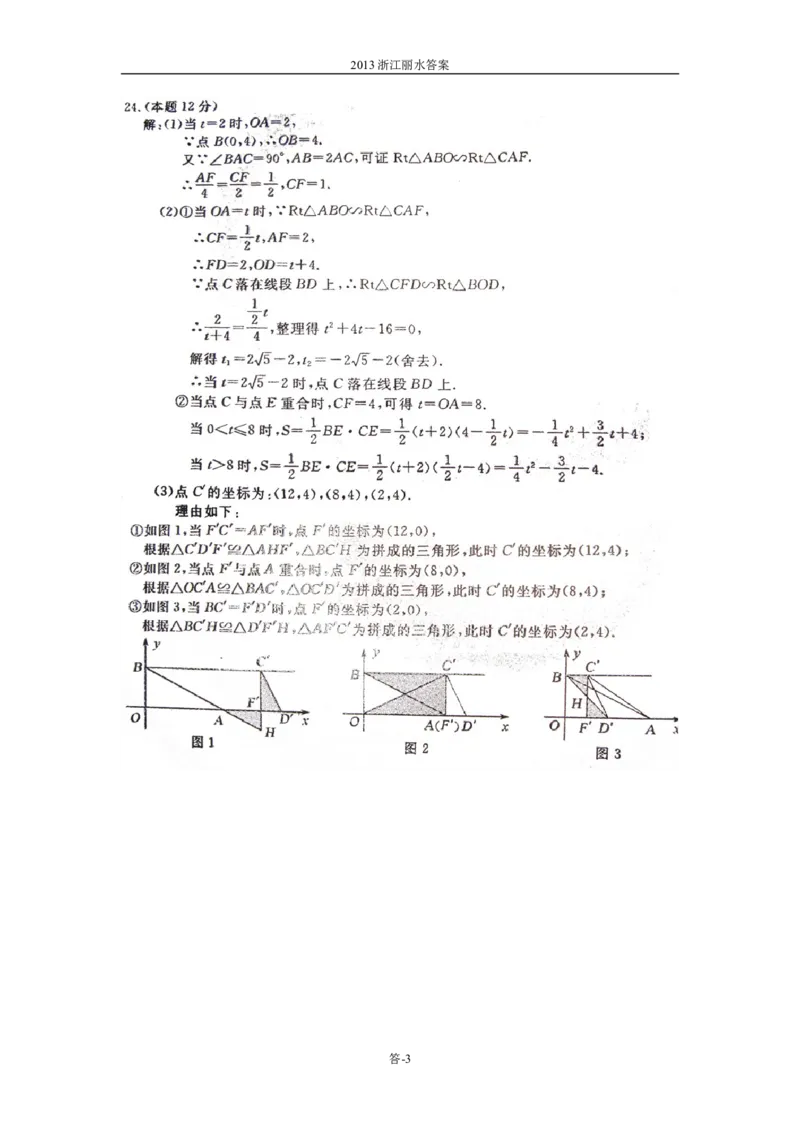 2013 浙江丽水答案
24.(本题12分)
解:(1)当 t=2 时,OA=2,
∵点 B(0,4),∴OB=4.
又∵∠BAC=90°,AB=2AC,可证 Rt△ABO∽Rt△CAF.
∴AF/4=CF/2=1/2,CF=1.
(2)①当 OA=t 时,∵Rt△ABO∽Rt△CAF,
∴CF=1/2t,AF=2,
∴FD=2,OD=t+4.
∵点 C 落在线段 BD 上,∴Rt△CFD∽Rt△BOD,
∴2/(t+4)=(1/2t)/4,整理得 t²+4t-16=0,
解得 t₁=2√5-2,t₂=-2√5-2(舍去).
∴当 t=2√5-2 时,点 C 落在线段 BD 上.
②当点 C 与点 E 重合时,CF=4,可得 t=OA=8.
当 0<t≤8 时,S=1/2BE·CE=1/2(t+2)(4-1/2t)=-1/4t²+3/2t+4;
当 t>8 时,S=1/2BE·CE=1/2(t+2)(1/2t-4)=1/4t²-3/2t-4.
(3)点 C′的坐标为:(12,4),(8,4),(2,4).
理由如下:
①如图 1,当 F′C′=AF′时,点 F′的坐标为(12,0),
根据△C′D′F′≌△AHF′,△BC′H 为拼成的三角形,此时 C′的坐标为(12,4);
②如图 2,当点 F′与点 A 重合时,点 F′的坐标为(8,0),
根据△OC′A≌△BAC′,△OC′D′为拼成的三角形,此时 C′的坐标为(8,4);
③如图 3,当 BC′=F′D′时,点 F′的坐标为(2,0),
根据△BC′H≌△D′F′H,△AF′C′为拼成的三角形,此时 C′的坐标为(2,4).
y B C′ F′ O A D′ x H
图 1
y B C′ O A(F′) D′ x
图 2
y B C′ H O F′ D′ A x
图 3
答-3